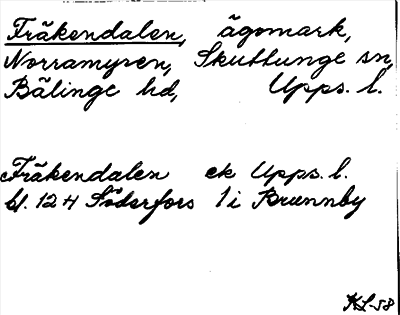 Fräkendalen, ägomark,
Norramyren, Skuttunge sn,
Bälinge hd, Upps. l.
Fräkendalen ek Upps. l.
bl. 12 H Söderfors 1 i Brunnby
KL-58